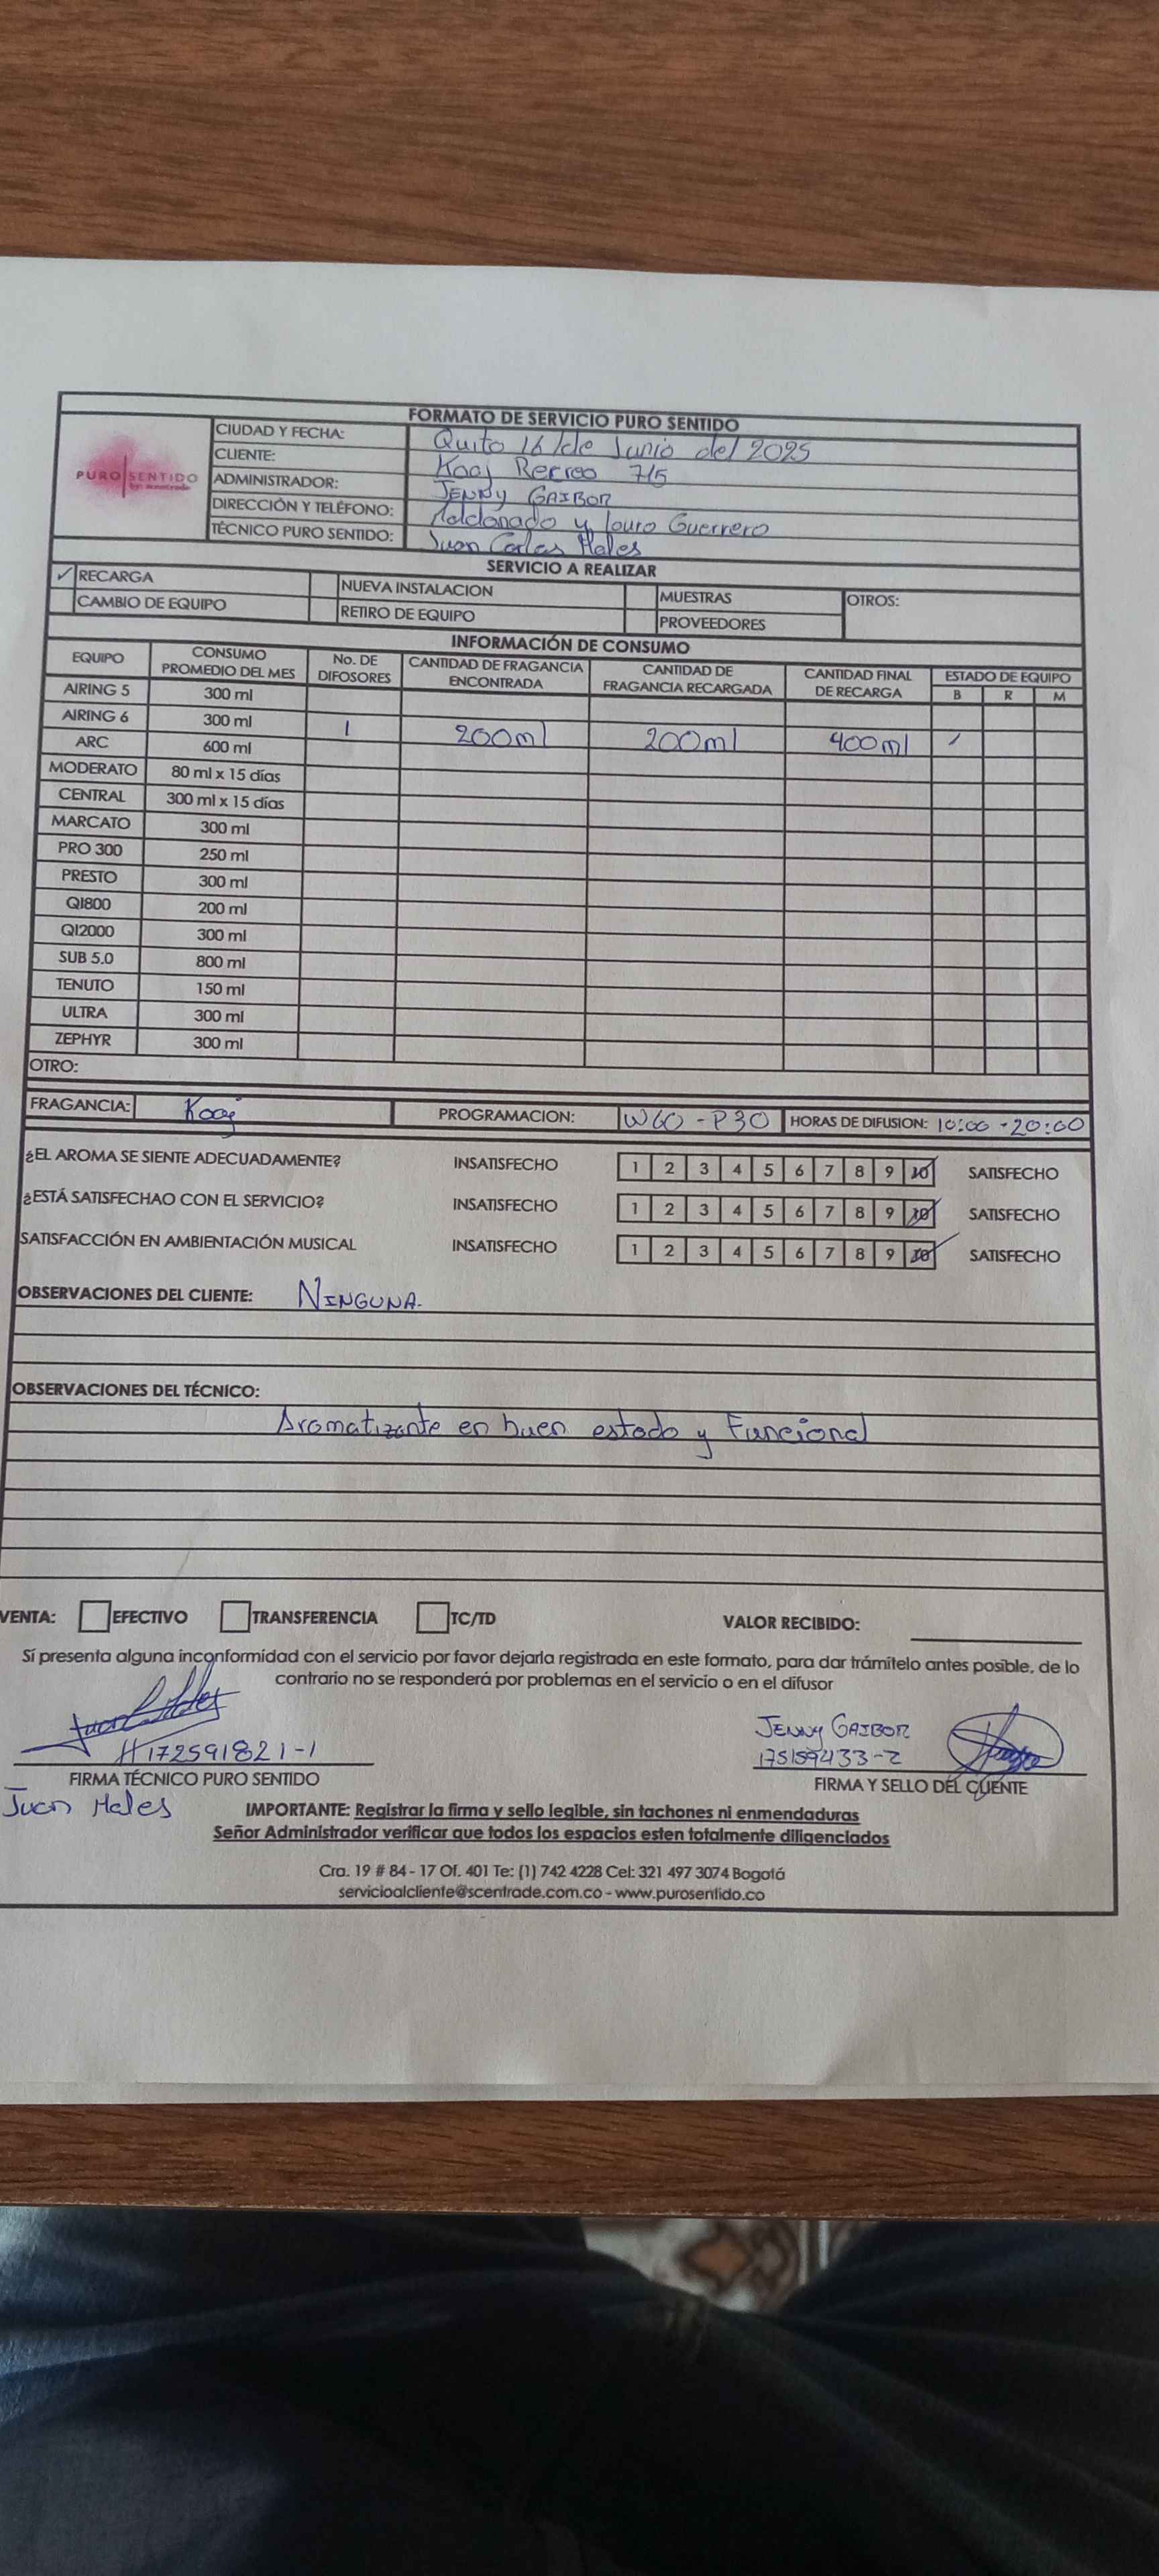 FORMATO DE SERVICIO PURO SENTIDO
PURO SENTIDO
by: scentrade
CIUDAD Y FECHA: Quito 16/de Junio del 2025
CLIENTE: Koaj Recreo 715
ADMINISTRADOR: JENNY GAIBOR
DIRECCIÓN Y TELÉFONO: Maldonado y Guerrero
TÉCNICO PURO SENTIDO: Juan Carlos Hales
SERVICIO A REALIZAR
✓ RECARGA NUEVA INSTALACION MUESTRAS OTROS:
CAMBIO DE EQUIPO RETIRO DE EQUIPO PROVEEDORES
INFORMACIÓN DE CONSUMO
EQUIPO CONSUMO PROMEDIO DEL MES No. DE DIFOSORES CANTIDAD DE FRAGANCIA ENCONTRADA CANTIDAD DE FRAGANCIA RECARGADA CANTIDAD FINAL DE RECARGA ESTADO DE EQUIPO
B R M
AIRING 5 300 ml
AIRING 6 300 ml 1 200ml 200ml 400ml ✓
ARC 600 ml
MODERATO 80 ml x 15 días
CENTRAL 300 ml x 15 días
MARCATO 300 ml
PRO 300 250 ml
PRESTO 300 ml
QI800 200 ml
QI2000 300 ml
SUB 5.0 800 ml
TENUTO 150 ml
ULTRA 300 ml
ZEPHYR 300 ml
OTRO:
FRAGANCIA: Koaj PROGRAMACION: W60 - P30 HORAS DE DIFUSION: 10:00 - 20:00
¿EL AROMA SE SIENTE ADECUADAMENTE? INSATISFECHO 1 2 3 4 5 6 7 8 9 10 SATISFECHO
¿ESTÁ SATISFECHAO CON EL SERVICIO? INSATISFECHO 1 2 3 4 5 6 7 8 9 10 SATISFECHO
SATISFACCIÓN EN AMBIENTACIÓN MUSICAL INSATISFECHO 1 2 3 4 5 6 7 8 9 10 SATISFECHO
OBSERVACIONES DEL CLIENTE: NINGUNA.
OBSERVACIONES DEL TÉCNICO:
Aromatizante en buen estado y Funcional
VENTA: EFECTIVO TRANSFERENCIA TC/TD VALOR RECIBIDO:
Sí presenta alguna inconformidad con el servicio por favor dejarla registrada en este formato, para dar trámitelo antes posible, de lo
contrario no se responderá por problemas en el servicio o en el difusor
JENNY GAIBOR
172591821-1 175159433-2
FIRMA TÉCNICO PURO SENTIDO FIRMA Y SELLO DEL CLIENTE
Juan Hales
IMPORTANTE: Registrar la firma y sello legible, sin tachones ni enmendaduras
Señor Administrador verificar que todos los espacios esten totalmente diligenciados
Cra. 19 # 84 - 17 Of. 401 Te: (1) 742 4228 Cel: 321 497 3074 Bogotá
servicioalcliente@scentrade.com.co - www.purosentido.co